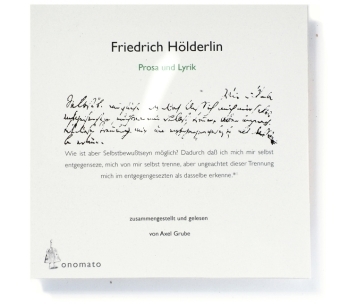 Friedrich Hölderlin
Prosa und Lyrik
Wie ist aber Selbstbewußtseyn möglich? Dadurch daß ich mich mir selbst
entgegenseze, mich von mir selbst trenne, aber ungeachtet dieser Trennung
mich im entgegengesezten als dasselbe erkenne.
zusammengestellt und gelesen
von Axel Grube
onomato